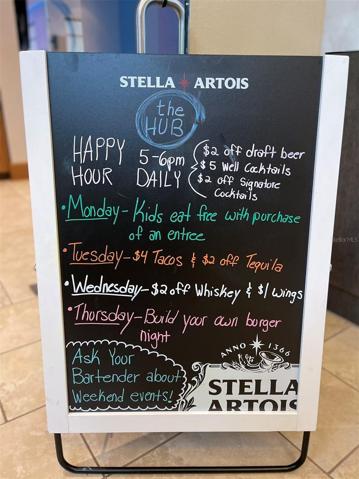 STELLA ARTOIS
the
HUB
HAPPY
HOUR
5-6pm
DAILY
$2 off draft beer
$5 Well Cocktails
$2 off Signature
Cocktails
•Monday-Kids eat free with purchase
of an entree
•Tuesday-$4 Tacos & $2 off Tequila
•Wednesday-$2 off Whiskey & $1 wings
•Thursday-Build your own burger
night
Ask Your
Bartender about
Weekend events!
ANNO 1366
STELLA
ARTOIS